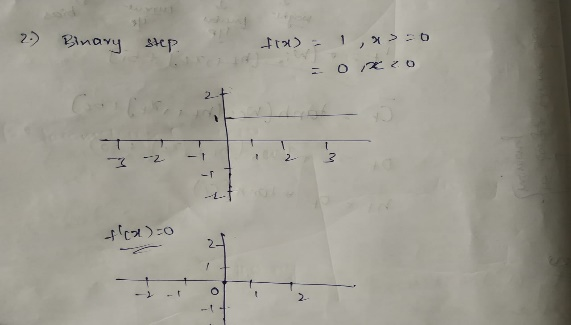 2.) Binary step f(x) = 1 , x >= 0
= 0 , x < 0
2
1
-3 -2 -1 1 2 3
-1
-2
f'(x) = 0
2
1
-2 -1 0 1 2
-1